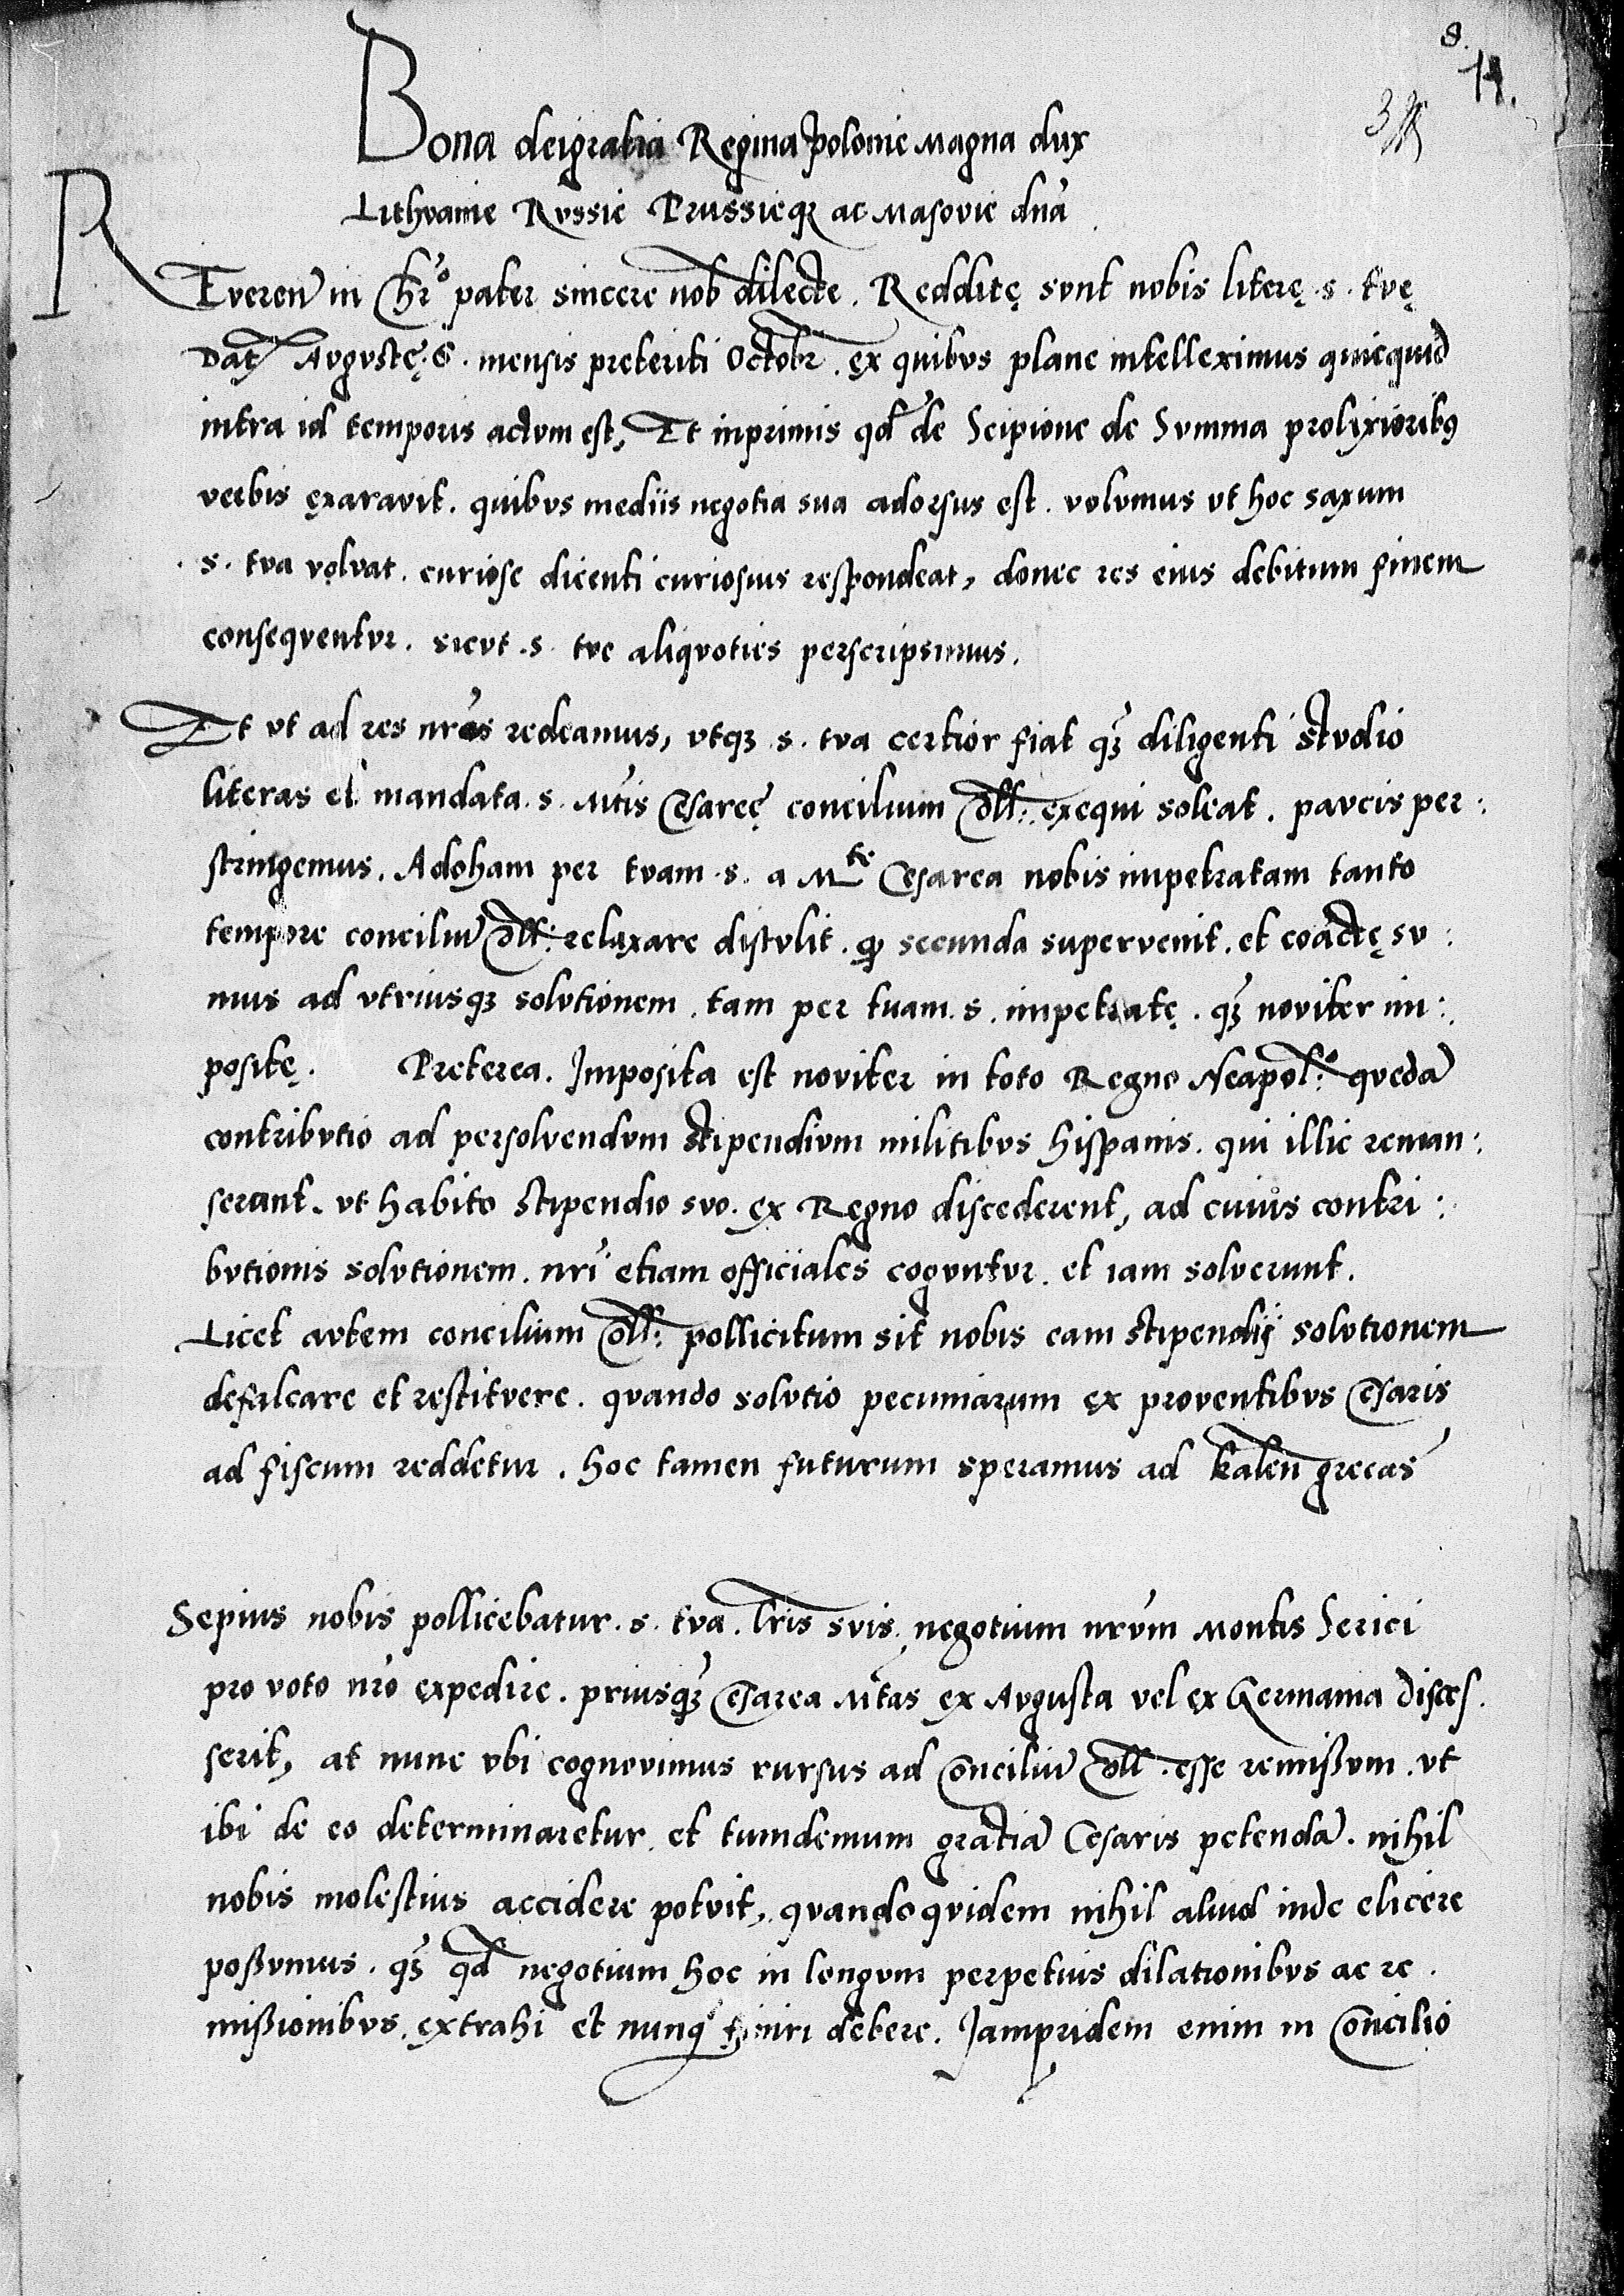 8.
14.
Bona dei gratia Regina Polonie Magna dux
Lithvanie Rvssie Prussieqʒ ac Masovie dna᷉
REveren̄ in Chr̄o pater sincere nob̄ dilecte. Redditę svnt nobis literę .s. tvę
Dat̄ Avgvstę .6. mensis preteriti Octobr̄. ęx quibvs plane intelleximus quicquid
intra id temporis actvm est, Et inprimis qd̄ de Scipione de Svmma prolixioribꝰ
verbis ęxaravit. quibvs mediis negotia sua adorsus est. volvmus vt hoc saxum
.s. tva volvat. curiose dicenti curiosius respondeat, donec res eius debitum finem
conseqventvr. sicvt .s. tve aliqvoties perscripsimus.
Et vt ad res nr̄as redeamus, vtqʒ .s. tva certior fiat qʒ̄ diligenti stvdio
literas et mandata .s. Mt̄is Cesareę concilium Coll: ęxequi soleat. pavcis per:
stringemus. Adoham per tvam .s. a Mᵗᵉ Cesarea nobis impetratam tanto
tempore conciliu᷉ Coll: relaxare distvlit. ꝙ secunda supervenit. et coactę sv:
mus ad vtriusqʒ solvtionem. tam per tuam .s. impetratę. qʒ̄ noviter im:
positę. Preterea. Imposita est noviter in toto Regno Neapolº: qveda᷉
contribvtio ad persolvendvm stipendivm militibvs hispanis. qui illic reman:
serant. vt habito stipendio svo. ęx Regno discederent, ad cuius contri:
bvtionis solvtionem. nr̄i etiam officiales cogvntvr. et iam solverunt.
Licet avtem concilium Coll: pollicitum sit nobis eam stipendij solvtionem
defalcare et restitvere. qvando solvtio pecuniarum ęx proventibvs Cesaris
ad fiscum reddetur. hoc tamen futurum speramus ad kalen̄ grecas
Sepius nobis pollicebatur .s. tva. lr̄is svis. negotium nr̄vm Montis Serici
pro voto nr̄o ęxpedire. priusqʒ̄ Cesarea Mt̄as ex Avgusta vel ęx Germania disces.
serit, at nunc vbi cognovimus rursus ad Conciliu᷉ Coll. esse remißvm. vt
ibi de eo determinaretur. et tumdemum gratia᷉ Cesaris petenda᷉. nihil
nobis molestius accidere potvit, qvandoqvidem nihil aliud inde elicere
poßvmus. qʒ̄ qd̄ negotium hoc in longvm perpetuis dilationibvs ac re.
mißionibvs. ęxtrahi et nunq̄ finiri debere. Jampridem enim in Concilio